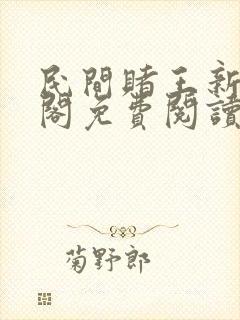 民間賭王新
閣免費閱讀
菊野郎